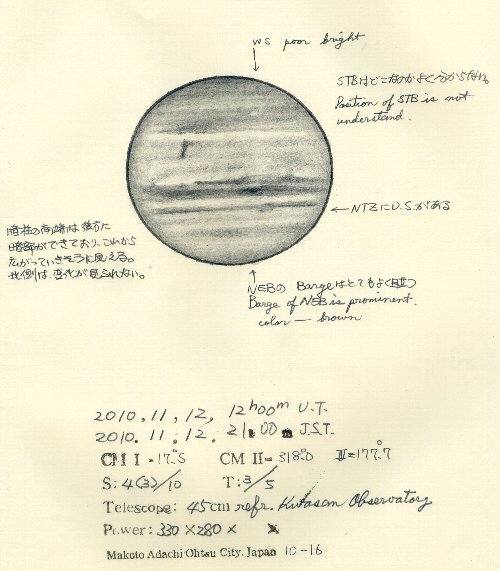 WS poor bright
STBはどこなのかよくわからない。
Position of STB is not
understand.
← NTZにD.S.がある
暗柱の南端は後方に
暗部ができており、これから
広がっていきそうに見える。
北側は変化が見られない。
NEBの Bargeはとてもよく目立つ
Barge of NEB is prominent.
color — brown
2010. 11, 12, 12h00m U.T.
2010. 11. 12. 21 00m J.S.T.
CM I = 17.°5 CM II = 318.°0 III = 177.°7
S: 4(3)/10 T: 3/5
Telescope: 45cm refr. Kwasan Observatory
Power: 330 × 280 ×
Makoto Adachi Ohtsu City. Japan 10-16